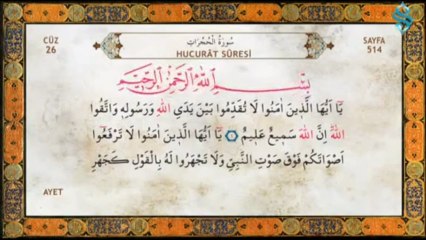 CÜZ
26
سُورَةُ الْحُجُرَاتِ
HUCURÂT SÛRESİ
SAYFA
514
بِسْمِ اللّٰهِ الرَّحْمٰنِ الرَّحِيمِ
يَٓا اَيُّهَا الَّذِينَ اٰمَنُوا لَا تُقَدِّمُوا بَيْنَ يَدَيِ اللّٰهِ وَرَسُولِهِ وَاتَّقُوا
اللّٰهَ اِنَّ اللّٰهَ سَمِيعٌ عَلِيمٌ يَٓا اَيُّهَا الَّذِينَ اٰمَنُوا لَا تَرْفَعُٓوا
اَصْوَاتَكُمْ فَوْقَ صَوْتِ النَّبِيِّ وَلَا تَجْهَرُوا لَهُ بِالْقَوْلِ كَجَهْرِ
AYET